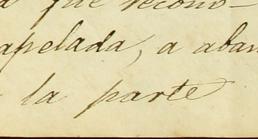 que recono-
apelada, a aban
la parte